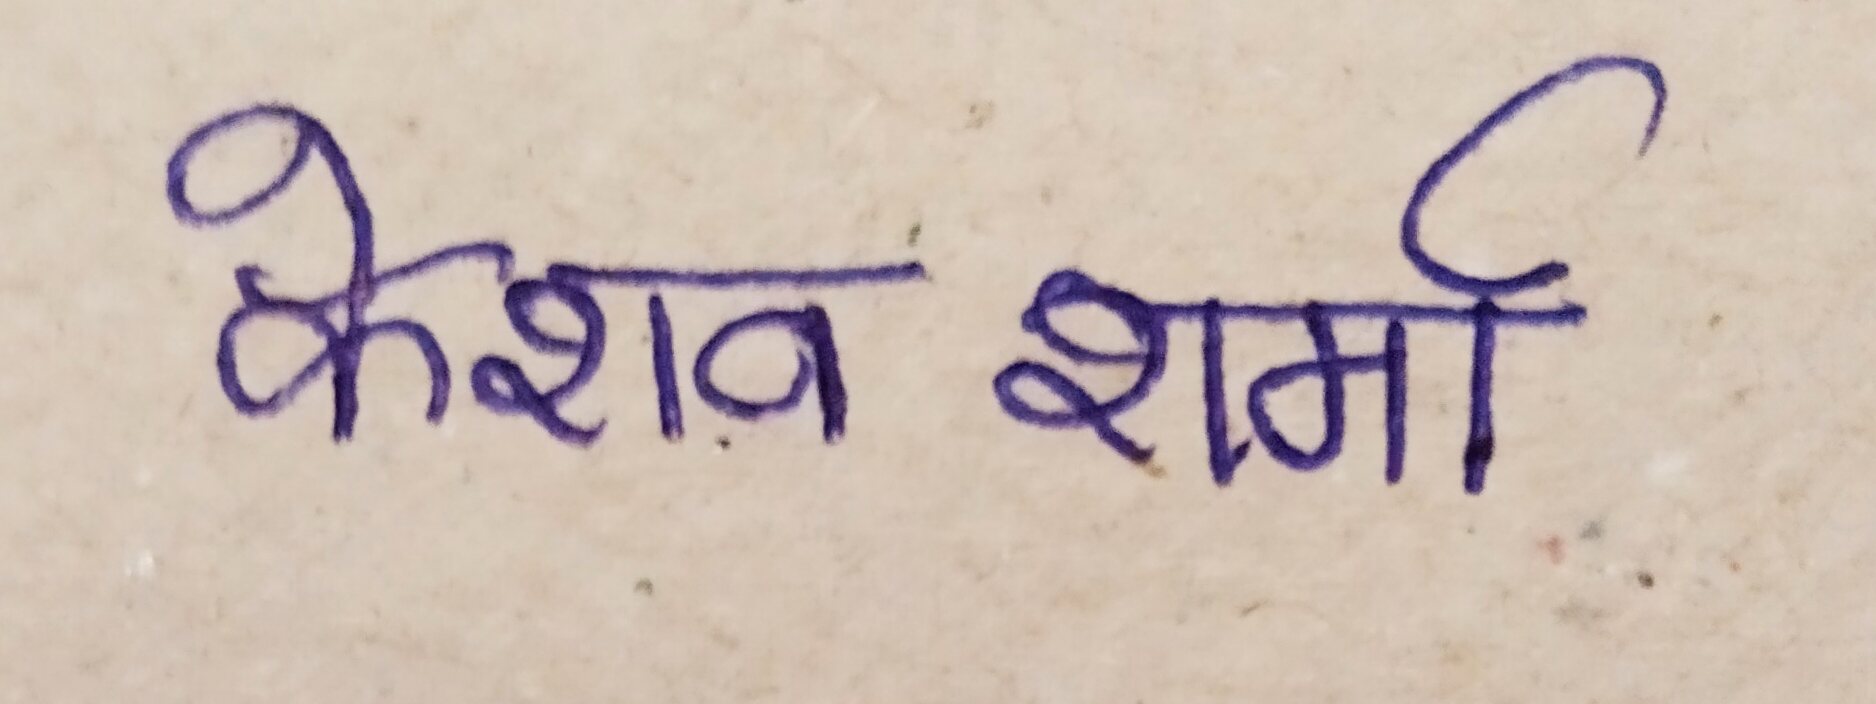 केशव शर्मा